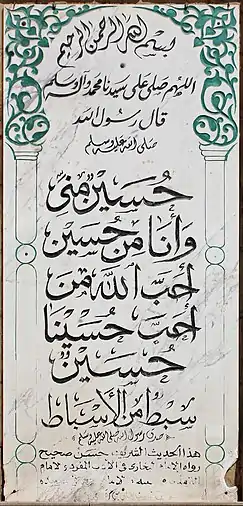 بسم الله الرحمن الرحيم
اللهم صلى على سيدنا محمد وآله وسلم
قال رسول الله
صلى الله عليه وسلم
حُسَيْن مِنِّي
وَأَنَا مِن حُسَيْن
أَحَبَّ اللّٰه مَن
أَحَبَّ حُسَيْنًا
حُسَيْنٌ
سِبْطٌ مِنَ الأَسْبَاطِ
صدق رسول الله صلى الله عليه وسلم
هذا الحديث الشريف حسن صحيح
رواه الإمام البخارى فى الأدب المفرد والإمام